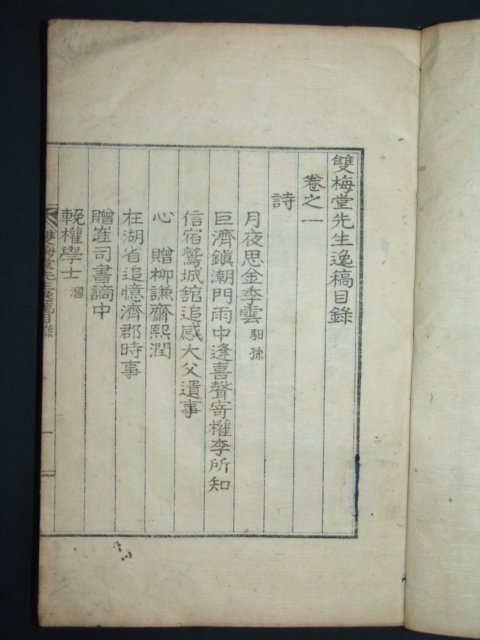 雙梅堂先生逸稿目錄
卷之一
詩
月夜思金季雲 馹孫
巨濟鎮潮門雨中逢喜聲寄權李所知
信宿鷲城舘追感大父遺事
心 贈柳謙齋熙潤
在湖省追憶濟郡時事
贈崔司書謫中
輓權學士
雙梅堂先生逸稿目錄
一